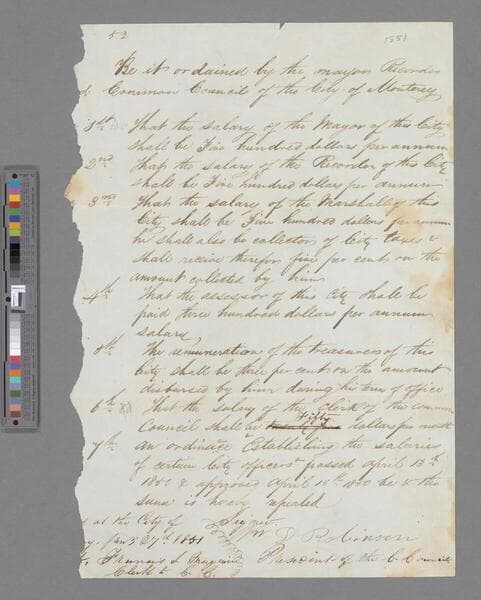 59
1851
Be it ordained by the mayor Recorder
d Common Council of the City of Monterey
1st That the salary of the Mayor of this City
shall be Five hundred dollars per annum
2nd That the salary of the Recorder of this City
shall be Five hundred dollars per annum
3rd That the salary of the Marshall of this
City shall be Five hundred dollars per annum
he shall also be collector of City taxes &
shall receive therefor five per cent on the
amount collected by him
4th That the assessor of this City shall be
paid three hundred dollars per annum
salary
5th The remuneration of the treasurer of this
City shall be three per cent on the amount
disbursed by him during his term of office
6th That the salary of the Clerk of the common
Council shall be Fifty dollars per month
7th an ordinance Establishing the salaries
of certain City officers passed April 13th
1850 & approved April 15th 1850 be & the
same is hereby repealed
at the City of Signed
Jany 27th 1851 Robinson
President of the C. Council
Clerk C. C.